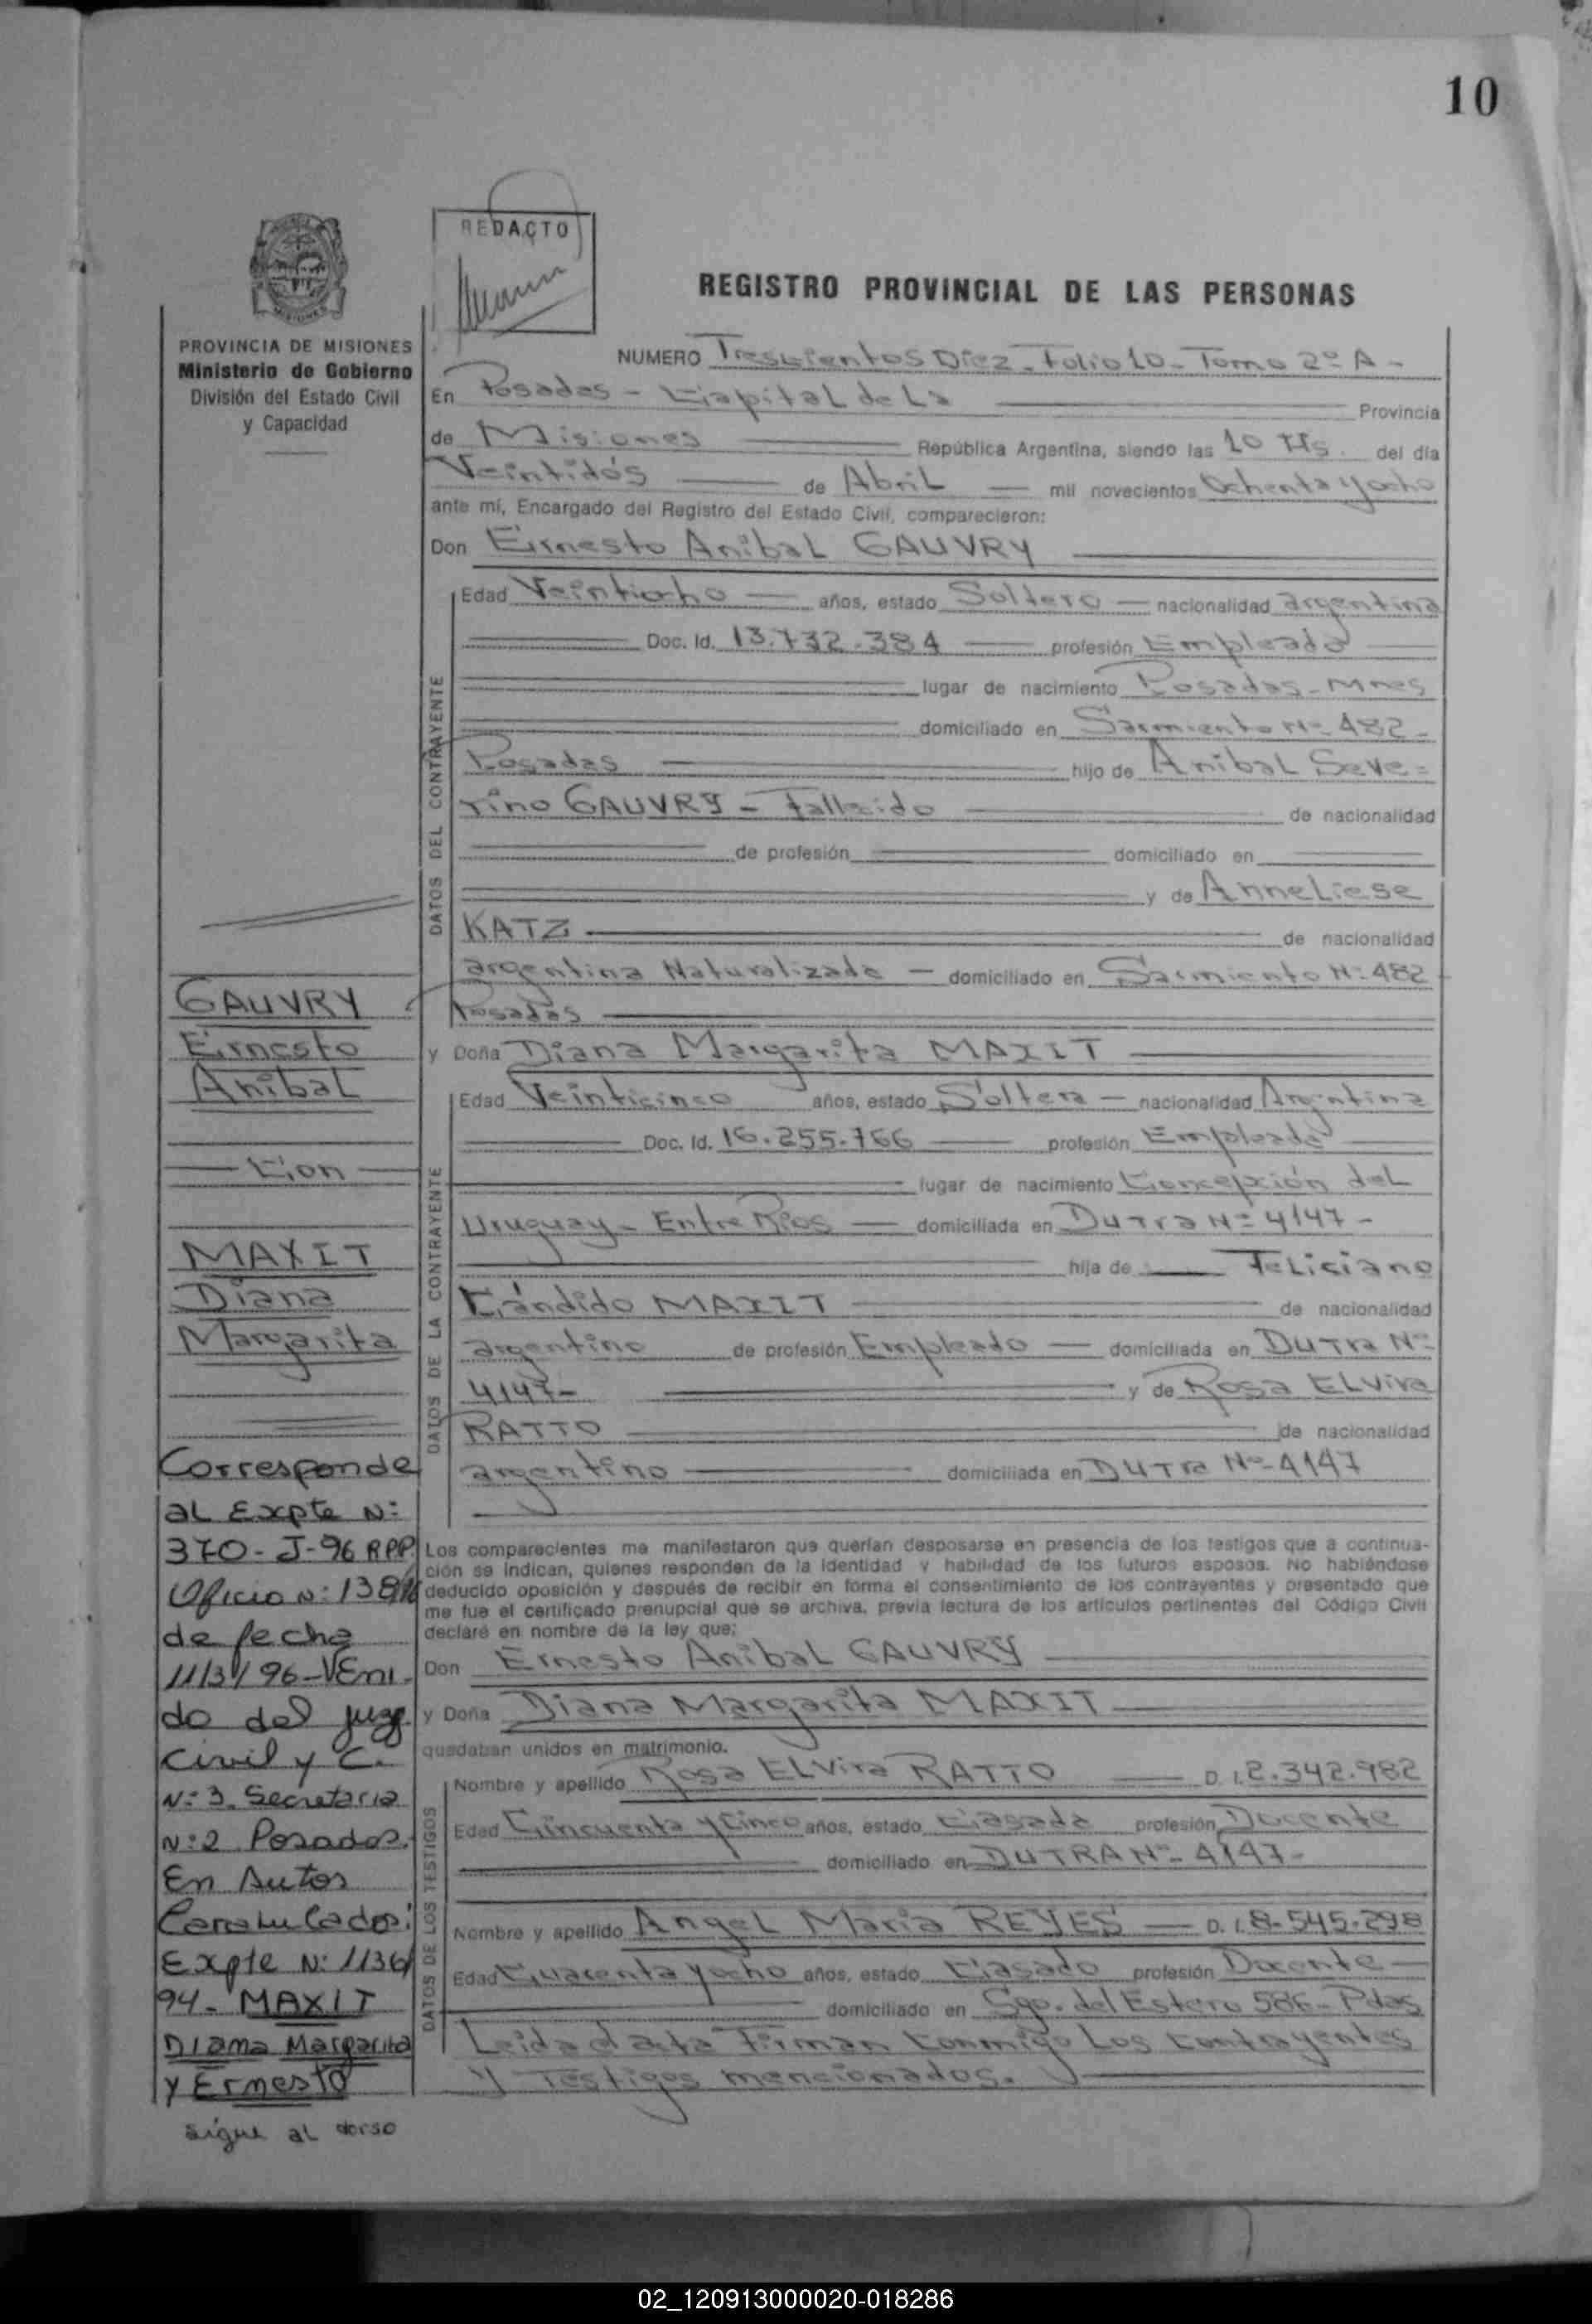 10
REDACTO
REGISTRO PROVINCIAL DE LAS PERSONAS
PROVINCIA DE MISIONES
Ministerio de Gobierno
División del Estado Civil
y Capacidad
NUMERO Trescientos Diez - Folio 10 - Tomo 2º A -
En Posadas - Capital de La Provincia
de Misiones República Argentina, siendo las 10 Hs. del día
Veintidós de Abril mil novecientos Ochenta y ocho
ante mí, Encargado del Registro del Estado Civil, comparecieron:
Don Ernesto Anibal GAUVRY
DATOS DEL CONTRAYENTE
Edad Veintiocho años, estado Soltero nacionalidad argentina
Doc. Id. 13.732.384 profesión Empleado
lugar de nacimiento Posadas - Mnes
domiciliado en Sarmiento Nº 482 -
Posadas hijo de Anibal Seve=
rino GAUVRY - Fallecido de nacionalidad
de profesión domiciliado en
y de Anneliese
KATZ de nacionalidad
argentina Naturalizada domiciliado en Sarmiento Nº 482
Posadas
y Doña Diana Margarita MAXIT
DATOS DE LA CONTRAYENTE
Edad Veinticinco años, estado Soltera nacionalidad Argentina
Doc. Id. 16.255.766 profesión Empleada
lugar de nacimiento Concepción del
Uruguay - Entre Ríos domiciliada en Dutra Nº 4147 -
hija de Feliciano
Cándido MAXIT de nacionalidad
argentino de profesión Empleado domiciliada en Dutra Nº
4147 - y de Rosa ELvira
RATTO de nacionalidad
argentino domiciliada en Dutra Nº 4147
Los comparecientes me manifestaron que querían desposarse en presencia de los testigos que a continua-
ción se indican, quienes responden de la identidad y habilidad de los futuros esposos. No habiéndose
deducido oposición y después de recibir en forma el consentimiento de los contrayentes y presentado que
me fue el certificado prenupcial que se archiva, previa lectura de los artículos pertinentes del Código Civil
declaré en nombre de la ley que:
Don Ernesto Anibal GAUVRY
y Doña Diana Margarita MAXIT
quedaban unidos en matrimonio.
DATOS DE LOS TESTIGOS
Nombre y apellido Rosa ELvira RATTO D. I. 2.342.982
Edad Cincuenta y Cinco años, estado Casada profesión Docente
domiciliado en DUTRA Nº 4147 -
Nombre y apellido Angel Maria REYES D. I. 8.545.298
Edad Cuarenta y ocho años, estado Casado profesión Docente
domiciliado en Sgo. del Estero 586 - Pdas
Leida el acta Firman conmigo Los contrayentes
y Testigos mencionados.
GAUVRY
Ernesto
Anibal
Con
MAXIT
Diana
Margarita
Corresponde
al Expte N:
370 - J - 96 RPP.
Oficio N:
de fecha
11/3/96 - Veni-
do del juzg.
Civil y C.
N: 3. Secretaria
N: 2. Posadas.
En Autos
Caratulados:
Expte N: 1136/
94 - MAXIT
Diana Margarita
y Ernesto
sigue al dorso
02_120913000020-018286